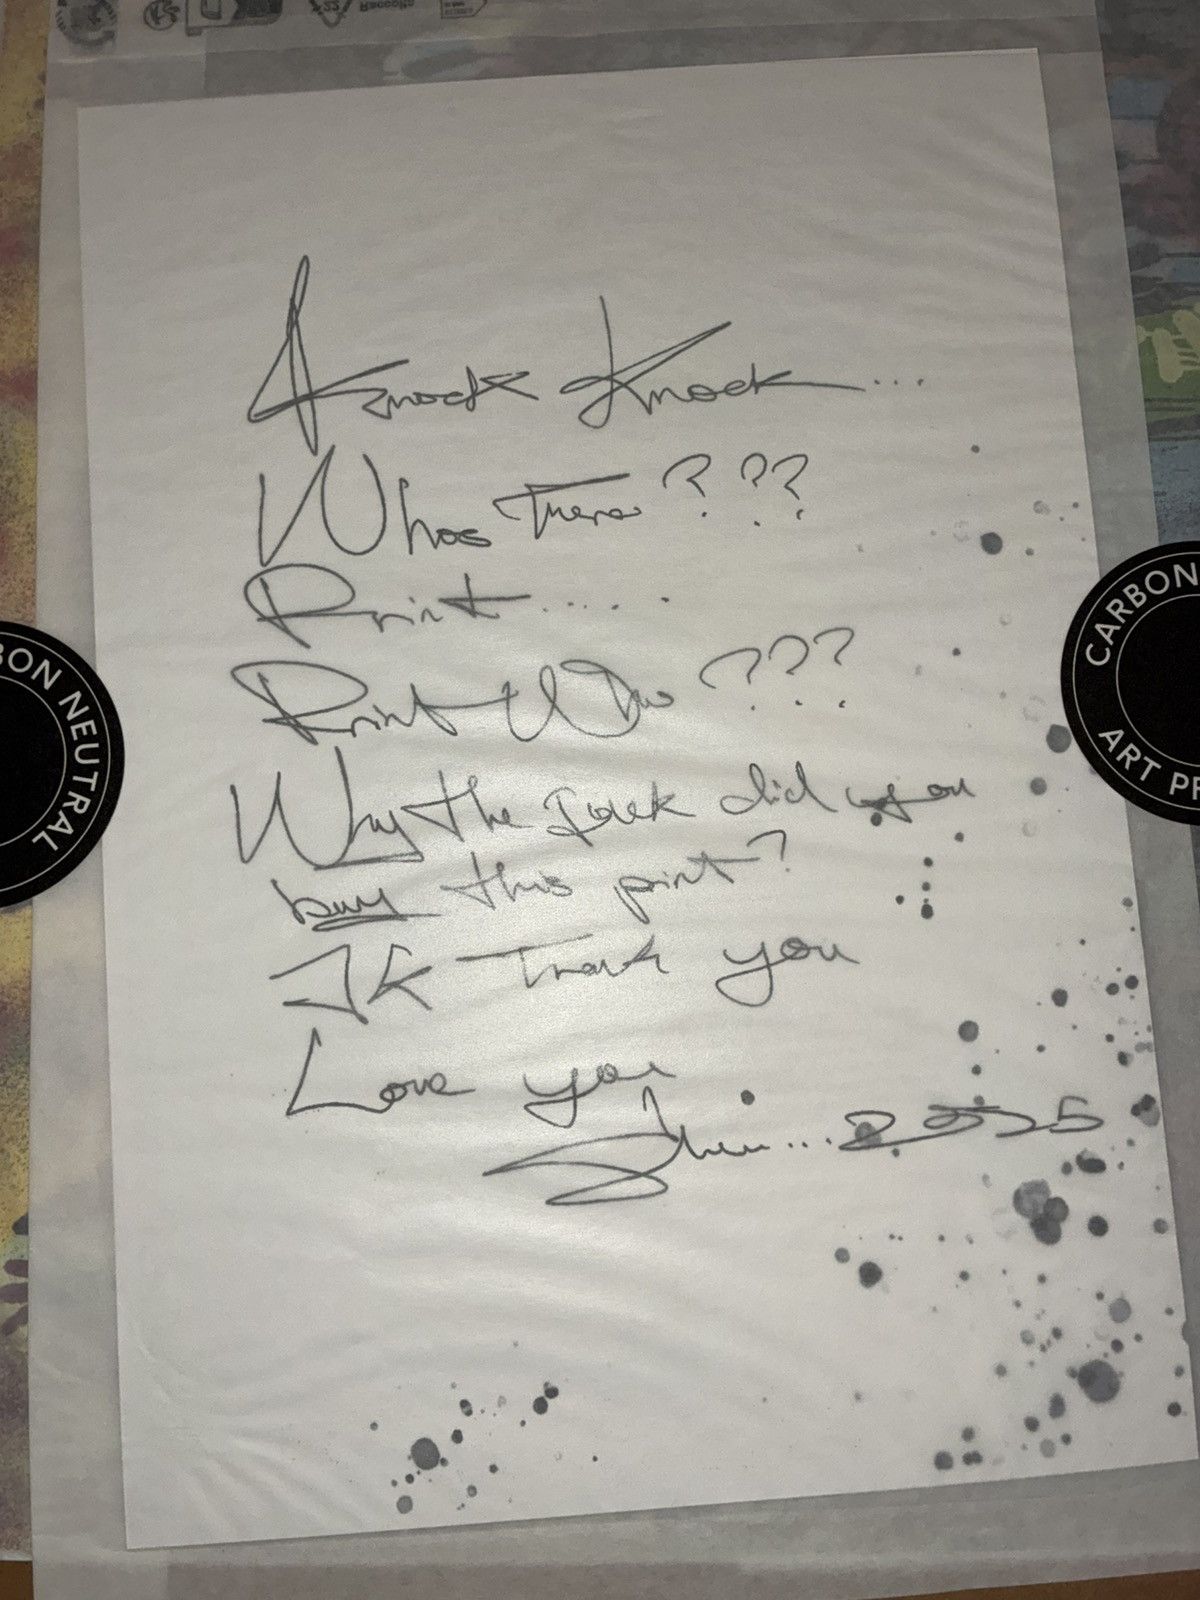 Raccolta
22
Knock Knock...
Whos There???
Print.....
Print Who???
Why the did you
buy this print?
JK Thank you
Love you
... 2025
BON NEUTRAL
CARBON
ART PR